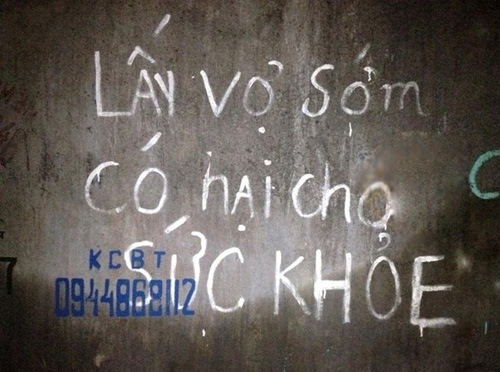 LẤY VỢ SỚM
CÓ HẠI CHO
SỨC KHỎE
KCBT
0944868112